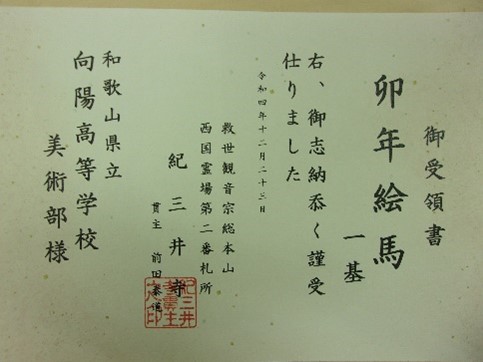 御受領書
卯年絵馬
一基
右、御志納忝く謹受
仕りました
令和四年十二月二十三日
救世観音宗総本山
西国霊場第二番札所
紀三井寺
貫主 前田泰道
和歌山県立
向陽高等学校
美術部様